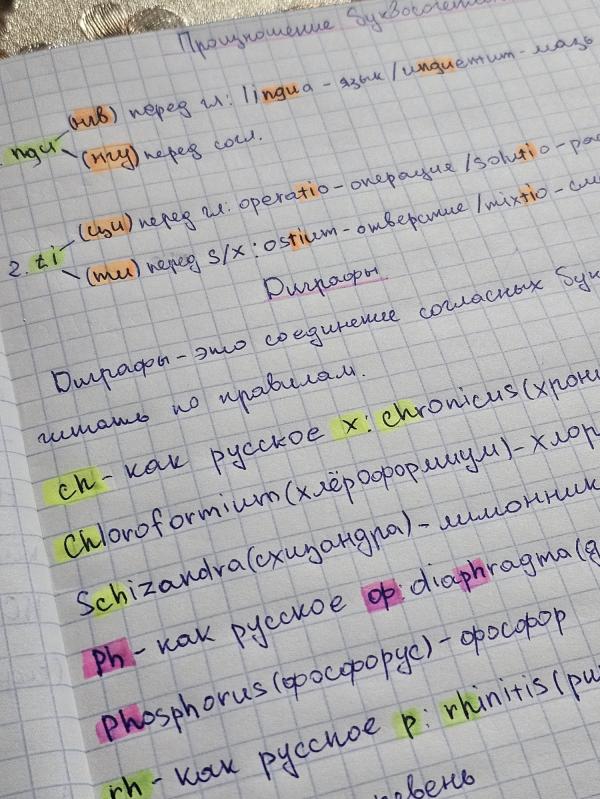 Произношение буквосочетан
ngu (нгв) перед гл: lingua - язык / unguentum - мазь
(нгу) перед согл.
2. ti (ци) перед гл: operatio - операция / solutio - рас
(ти) перед s/x: ostium - отверстие / mixtio - сме
Диграфы
Диграфы - это соединение согласных бук
читать по правилам.
ch - как русское х: chronicus (хрони
Chloroformium (хлёроформиум) - хлор
Schizandra (схизандра) - лимонник
ph - как русское ф: diaphragma (д
phosphorus (фосфорус) - фосфор
rh - как русское р: rhinitis (ри
ревень